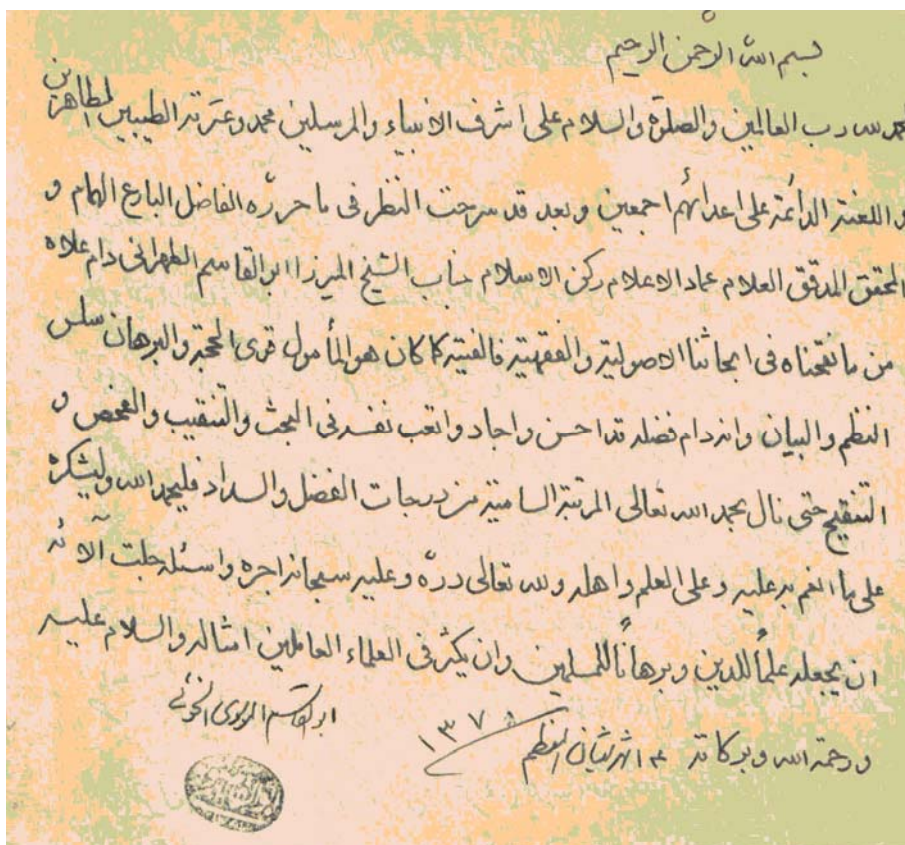 بسم الله الرحمن الرحيم
الحمد لله رب العالمين والصلوة والسلام على اشرف الانبياء والمرسلين محمد وعترته الطيبين الطاهرين
واللعنة الدائمة على اعدائهم اجمعين وبعد قد سرحت النظر فى ما حرره الفاضل البارع الهمام و
المحقق المدقق العلام عماد الاعلام ركن الاسلام جناب الشيخ الميرزا ابو القاسم الطهرانى دام علاه
من ما نقحناه فى ابحاثنا الاصولية والفقهية فالفيته كما كان هو المأمول قوى الحجة والبرهان سلس
النظم والبيان وانه دام فضله قد احسن واجاد واتعب نفسه فى البحث والتنقيب والفحص و
التنقيح حتى نال بحمد الله تعالى المرتبة السامية من درجات الفضل والسداد فليحمد الله وليشكره
على ما انعم به عليه وعلى العلم واهله ولله تعالى دره وعليه سبحانه اجره واسئله جلت آلائه
ان يجعله علماً للدين وبرهاناً للمسلمين وان يكثر فى العلماء العاملين امثاله والسلام عليه
ابو القاسم الموسوى الخوئى
ورحمة الله وبركاته شهر شعبان المعظم ١٣٧٥